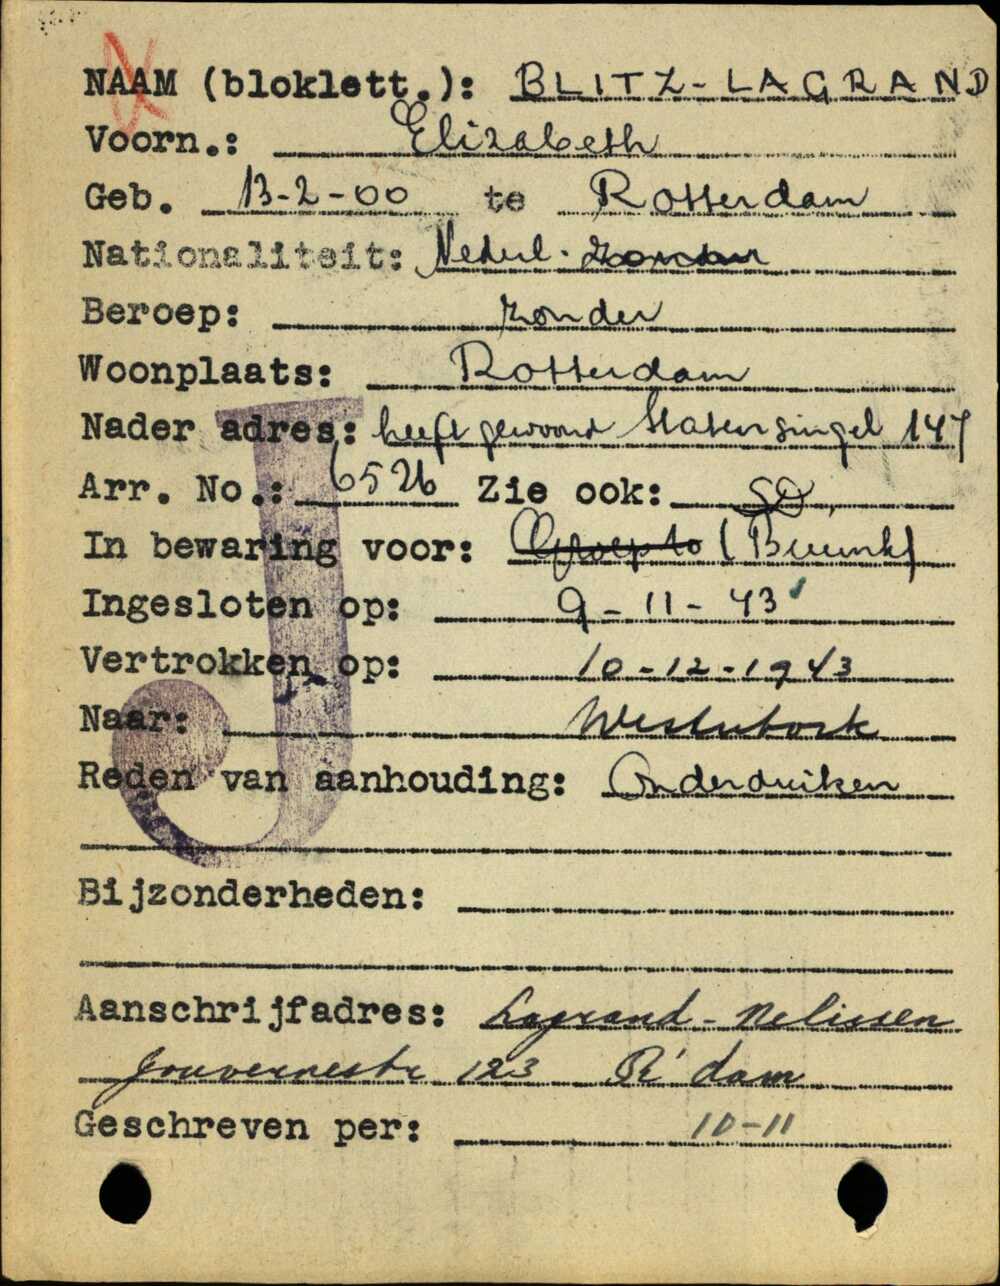 NAAM (bloklett.): BLITZ-LAGRAND
Voorn.: Elizabeth
Geb. 13-2-00 te Rotterdam
Nationaliteit: Nederl.
Beroep: zonder
Woonplaats: Rotterdam
Nader adres: heeft gewoond Statensingel 147
Arr. No.: 6526 Zie ook: SD
In bewaring voor: Groep 10
Ingesloten op: 9-11-43
Vertrokken op: 10-12-1943
Naar: Westerbork
Reden van aanhouding: Onderduiken
Bijzonderheden:
Aanschrijfadres: Lagrand-Nelissen
Gouvernestr 123 R'dam
Geschreven per: 10-11
J